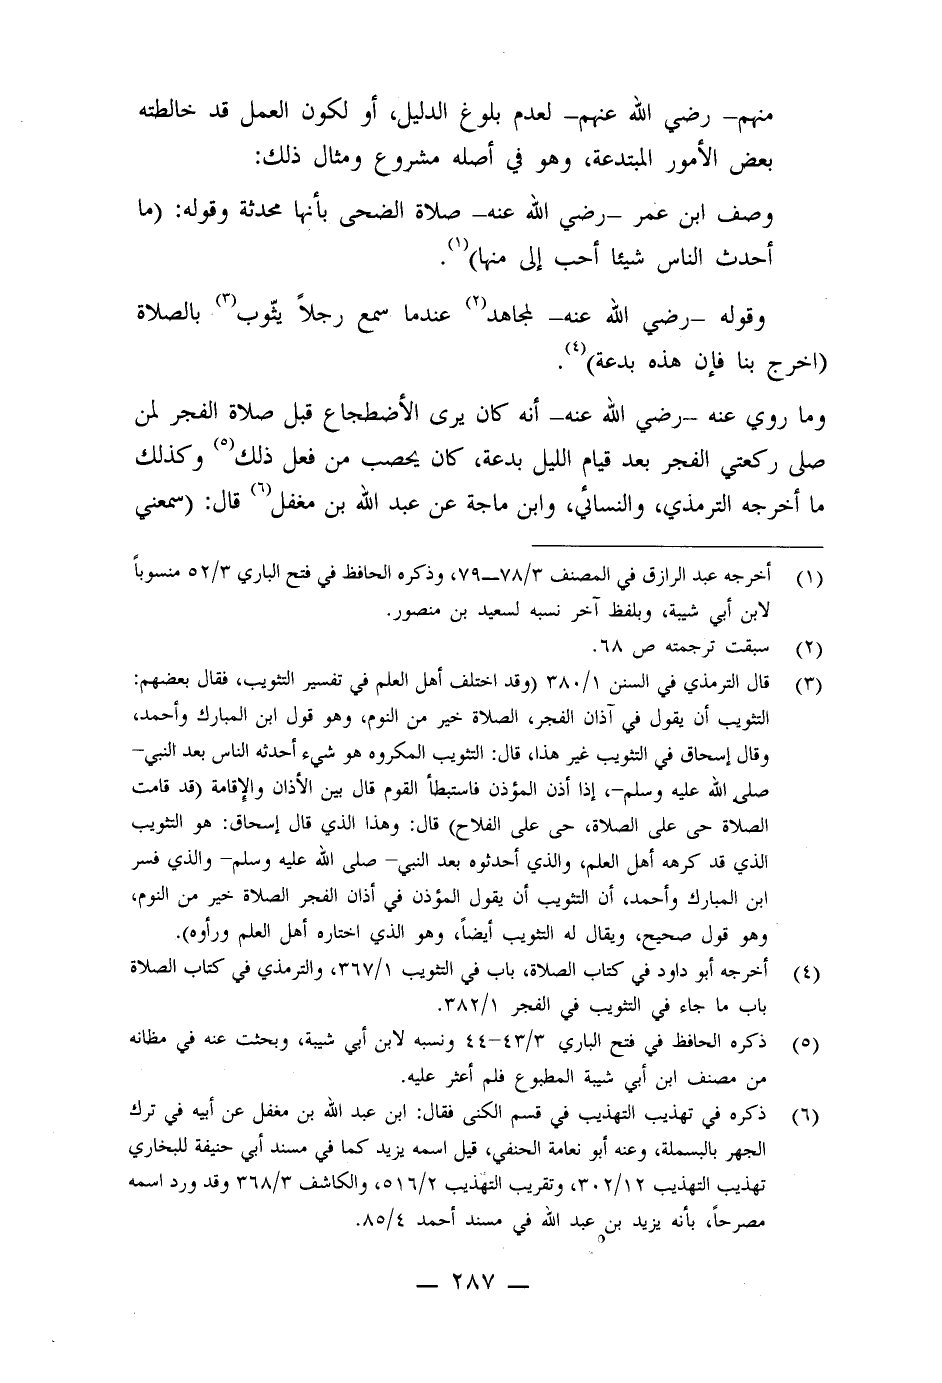 منهم– رضي الله عنهم– لعدم بلوغ الدليل، أو لكون العمل قد خالطته
بعض الأمور المبتدعة، وهو في أصله مشروع ومثال ذلك:
وصف ابن عمر –رضي الله عنه– صلاة الضحى بأنها محدثة وقوله: (ما
أحدث الناس شيئا أحب إلى منها)(١).
وقوله –رضي الله عنه– لمجاهد(٢) عندما سمع رجلاً يثّوب(٣) بالصلاة
(اخرج بنا فإن هذه بدعة)(٤).
وما روي عنه –رضي الله عنه– أنه كان يرى الأضطجاع قبل صلاة الفجر لمن
صلى ركعتي الفجر بعد قيام الليل بدعة، كان يحصب من فعل ذلك(٥) وكذلك
ما أخرجه الترمذي، والنسائي، وابن ماجة عن عبد الله بن مغفل(٦) قال: (سمعني
(١) أخرجه عبد الرازق في المصنف ٧٨/٣–٧٩، وذكره الحافظ في فتح الباري ٥٢/٣ منسوباً
لابن أبي شيبة، وبلفظ آخر نسبه لسعيد بن منصور.
(٢) سبقت ترجمته ص ٦٨.
(٣) قال الترمذي في السنن ٣٨٠/١ (وقد اختلف أهل العلم في تفسير التثويب، فقال بعضهم:
التثويب أن يقول في آذان الفجر، الصلاة خير من النوم، وهو قول ابن المبارك وأحمد،
وقال إسحاق في التثويب غير هذا، قال: التثويب المكروه هو شيء أحدثه الناس بعد النبي–
صلى الله عليه وسلم–، إذا أذن المؤذن فاستبطأ القوم قال بين الأذان والإقامة (قد قامت
الصلاة حى على الصلاة، حى على الفلاح) قال: وهذا الذي قال إسحاق: هو التثويب
الذي قد كرهه أهل العلم، والذي أحدثوه بعد النبي– صلى الله عليه وسلم– والذي فسر
ابن المبارك وأحمد، أن التثويب أن يقول المؤذن في أذان الفجر الصلاة خير من النوم،
وهو قول صحيح، ويقال له التثويب أيضاً، وهو الذي اختاره أهل العلم ورأوه).
(٤) أخرجه أبو داود في كتاب الصلاة، باب في التثويب ٣٦٧/١، والترمذي في كتاب الصلاة
باب ما جاء في التثويب في الفجر ٣٨٢/١.
(٥) ذكره الحافظ في فتح الباري ٤٣/٣–٤٤ ونسبه لابن أبي شيبة، وبحثت عنه في مظانه
من مصنف ابن أبي شيبة المطبوع فلم أعثر عليه.
(٦) ذكره في تهذيب التهذيب في قسم الكنى فقال: ابن عبد الله بن مغفل عن أبيه في ترك
الجهر بالبسملة، وعنه أبو نعامة الحنفي، قيل اسمه يزيد كما في مسند أبي حنيفة للبخاري
تهذيب التهذيب ٣٠٢/١٢، وتقريب التهذيب ٥١٦/٢، والكاشف ٣٦٨/٣ وقد ورد اسمه
مصرحاً، بأنه يزيد بن عبد الله في مسند أحمد ٨٥/٤.
— ٢٨٧ —